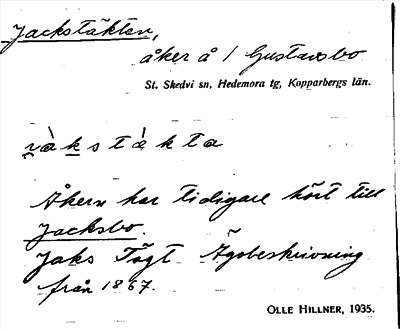 Jackstäkten,
åker å / Gustavsbo
St. Skedvi sn, Hedemora tg, Kopparbergs län.
Åkern har tidigare hört till
Jacksbo.
Jaks Tägt Ägobeskrivning
från 1867.
OLLE HILLNER, 1935.